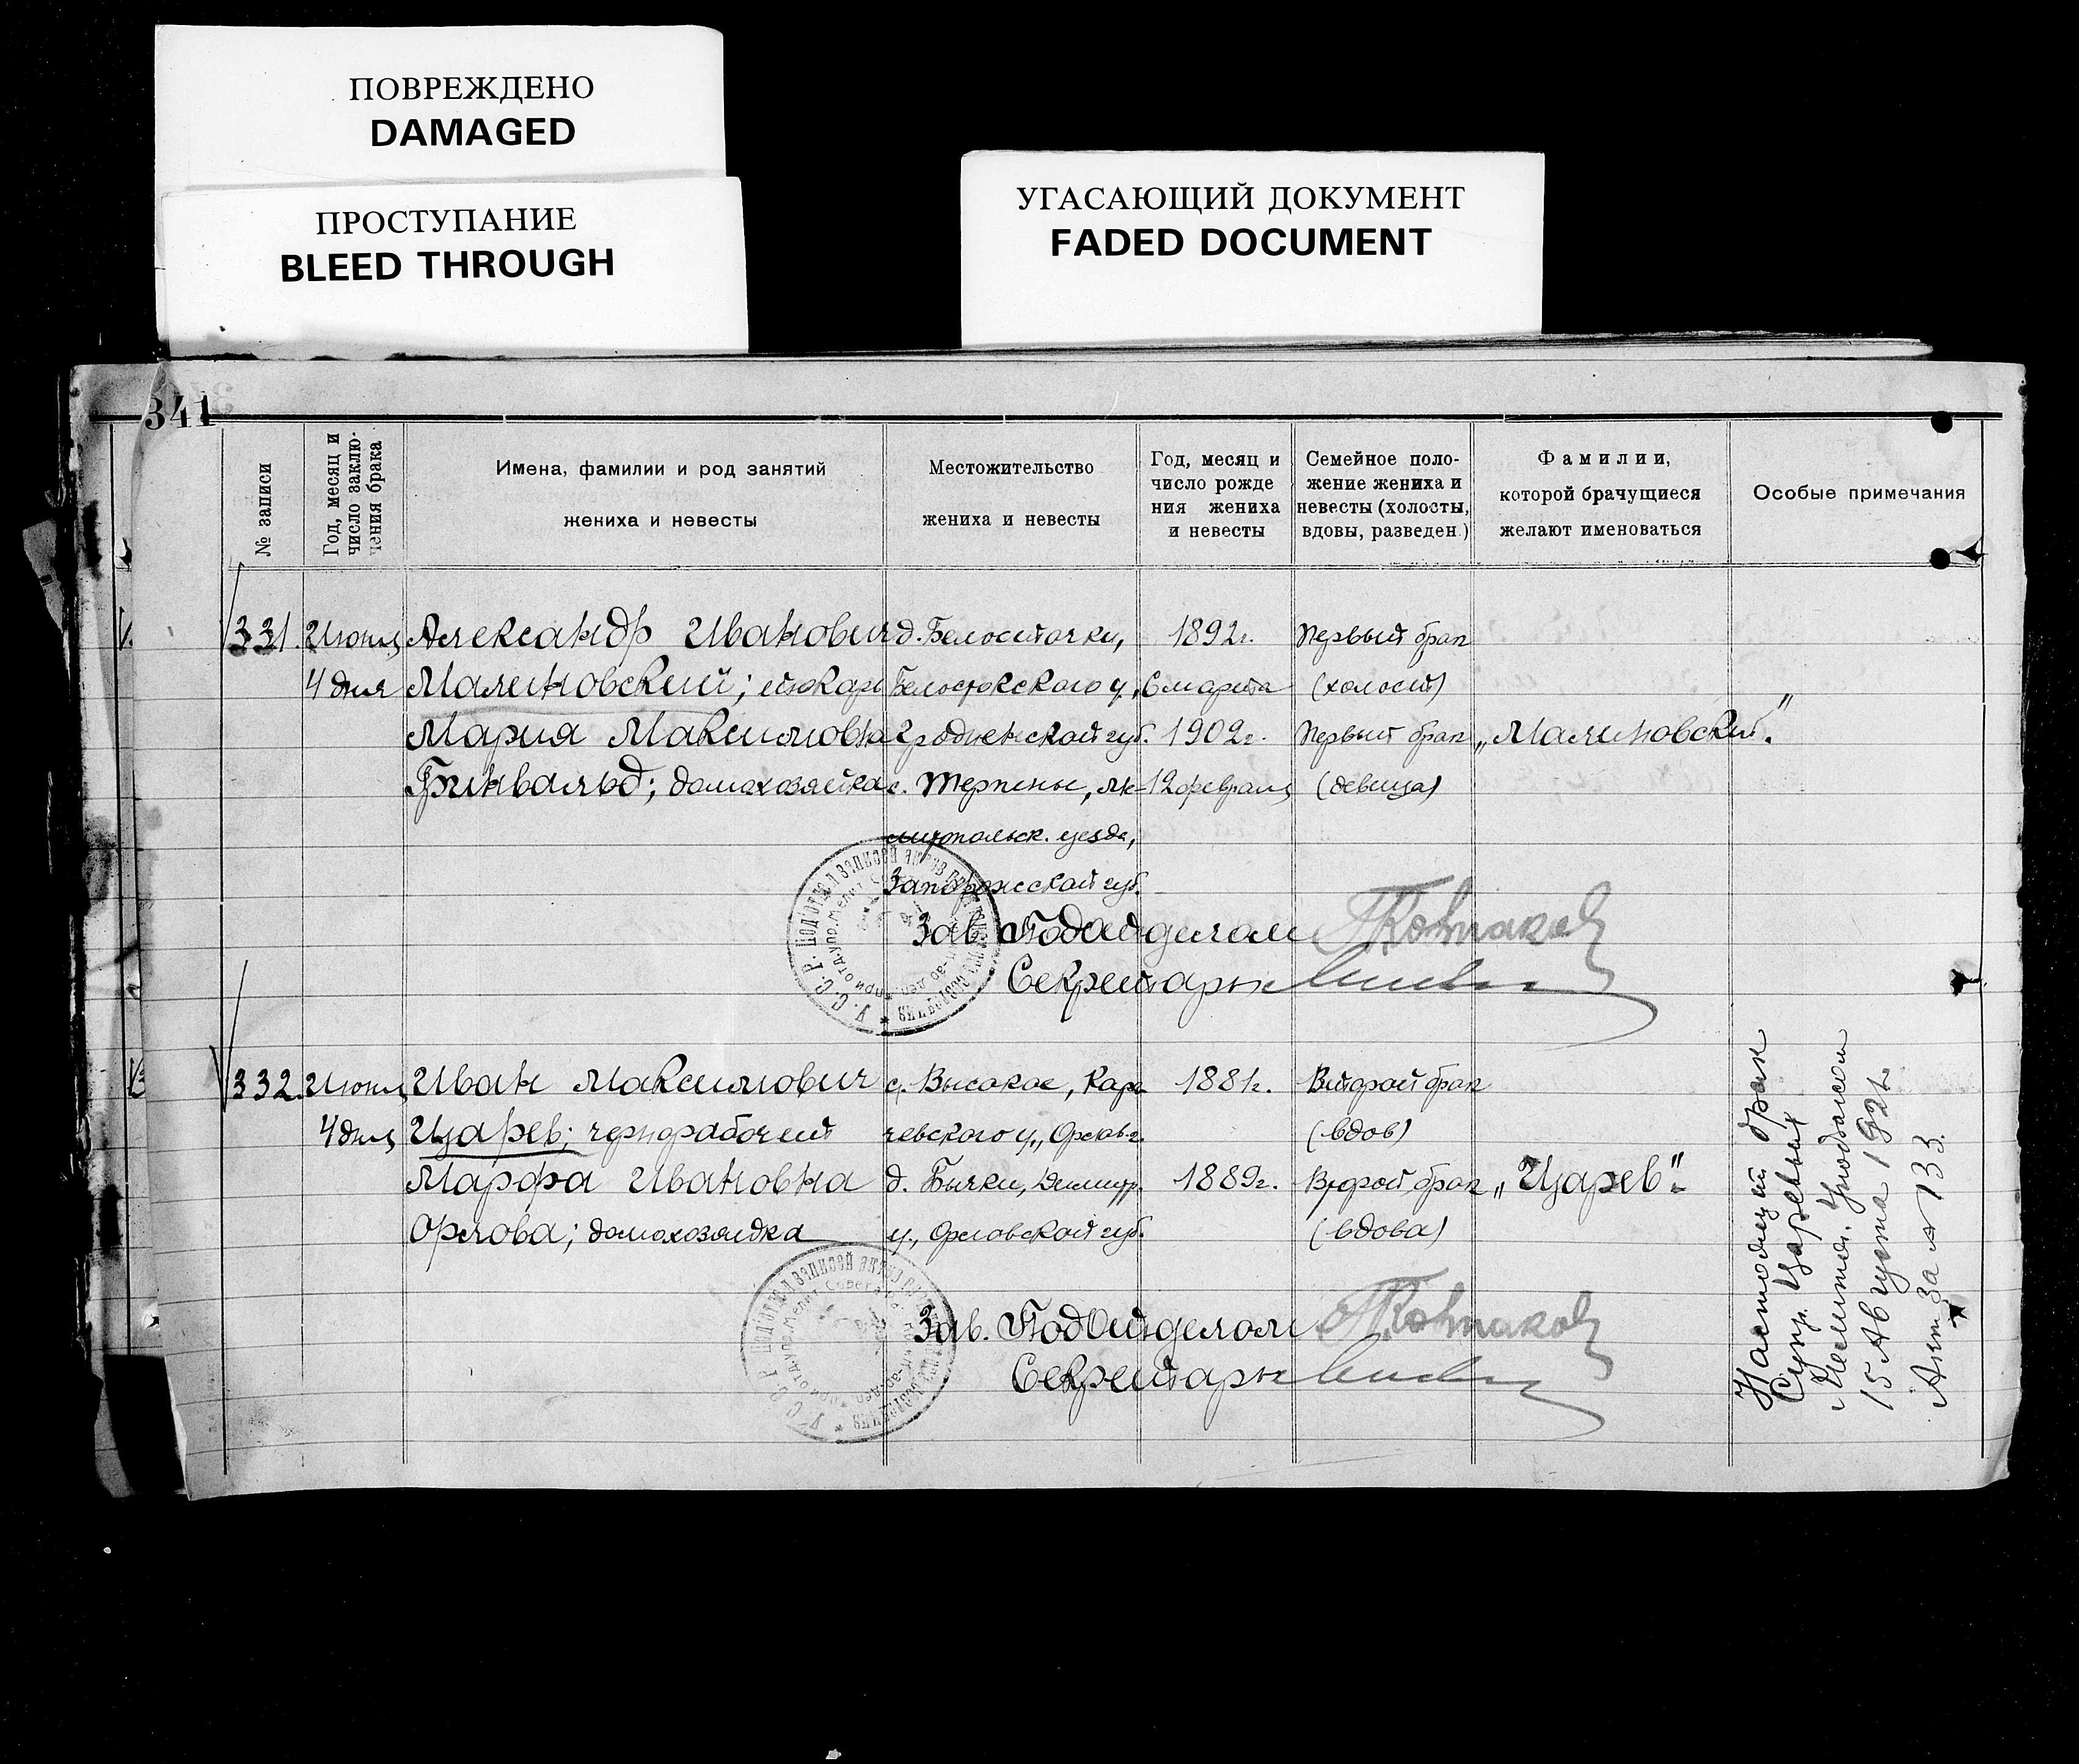 ПОВРЕЖДЕНО
DAMAGED
ПРОСТУПАНИЕ
BLEED THROUGH
УГАСАЮЩИЙ ДОКУМЕНТ
FADED DOCUMENT
341
№ записи
Год, месяц и
число заклю-
чения брака
Имена, фамилии и род занятий
жениха и невесты
Местожительство
жениха и невесты
Год, месяц и
число рожде
ния жениха
и невесты
Семейное поло-
жение жениха и
невесты (холосты,
вдовы, разведен.)
Фамилии,
которой брачущиеся
желают именоваться
Особые примечания
331. Июня Александр Иванович д. Белосточки, 1892г. Первый брак
4 дня Малиновский; Белостокского у., 6 марта (холост)
Мария Максимовна Гродненской губ. 1902г. Первый брак „Малиновский."
Гринвальд; домохозяйка с. Терпены, Ме- 12 февраля (девица)
литопольск. уезда,
Запорожской губ.
Зав. Подотделом
Секретарь
332. Июня Иван Максимович с. Высокое, Кара- 1881г. Второй брак
4 дня Царев; чернорабочий чевского у., Орлов. г. (вдов)
Марфа Ивановна д. Бычки, Дмитр. 1889г. Второй брак „Царев".
Орлова; домохозяйка у., Орловской губ. (вдова)
Зав. Подотделом
Секретарь
У.С.С.Р. Подотдел записей актов
Брак
Супр. Царевых
15 Августа 192
За № 133.